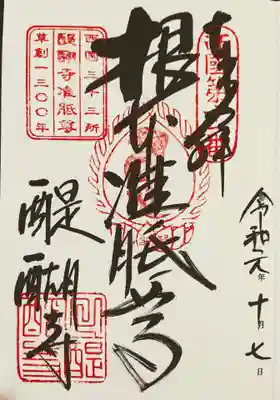 奉拝
西國第
根本准胝尊
西国三十三所
醍醐寺准胝尊
草創一三〇〇年
醍醐寺
令和元年十月七日